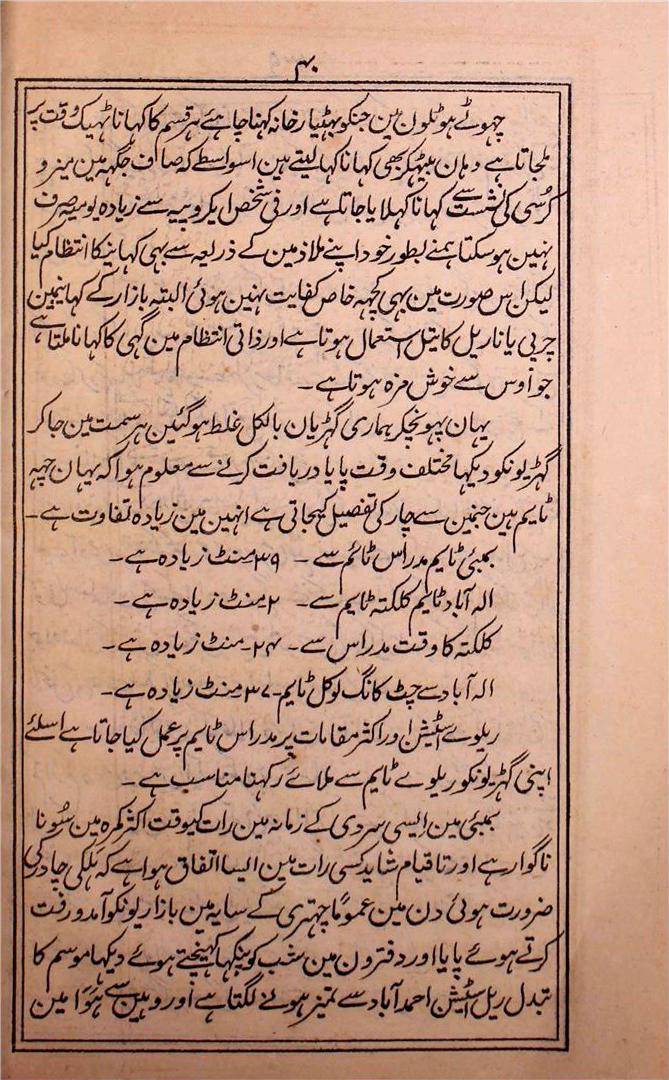 ۴۰
چہوٹے ہوٹلون مین جنکو بہٹیار خانہ کہنا چاہئے ہر قسم کا کہانا ٹہیک وقت پر
ملجاتا ہے وہان بیٹہکر بھی کہانا کہا لیتے ہین اسواسطے کہ صاف جگہہ مین میز و
کرسُی کی نشست سے کہانا کہلایا جاتا ہے اور فی شخص ایکروپیہ سے زیادہ یومیہ صرف
نہین ہو سکتا ہمنے بطور خود اپنے ملازمین کے ذریعہ سے بہی کہانیکا انتظام کیا
لیکن اس صورت مین بہی کچہہ خاص کفایت نہین ہوئی البتہ بازار کے کہانیمین
چربی یا ناریل کا تیل استعمال ہوتا ہے اور ذاتی انتظام مین گہی کا کہانا ملتا ہے
جو اُوس سے خوش مزہ ہوتا ہے ۔
یہان پہونچکر ہماری گہڑیان بالکل غلط ہو گئین ہر سمت مین جا کر
گہڑیونکو دیکہا مختلف وقت پایا دریافت کرنے سے معلوم ہوا کہ یہان چہہ
ٹایم ہین جنمین سے چار کی تفصیل کیجاتی ہے انہین مین زیادہ تفاوت ہے ۔
بمبئی ٹایم مدراس ٹائم سے ۔ ۳۹ منٹ زیادہ ہے ۔
الہ آباد ٹایم کلکتہ ٹایم سے ۔ ۲ منٹ زیادہ ہے ۔
کلکتہ کا وقت مدراس سے ۔ ۲۴ ۔ منٹ زیادہ ہے ۔
الہ آباد سے چٹ کانگ لوکل ٹایم ۔ ۳۷ منٹ زیادہ ہے ۔
ریلوے اسٹیشن اور اکثر مقامات پر مدراس ٹایم پر عمل کیا جاتا ہے اسلئے
اپنی گہڑیونکو ریلوے ٹایم سے ملائے رکہنا مناسب ہے ۔
بمبئی مین ایسی سردی کے زمانہ مین رات کیوقت اکثر کمرہ مین سُونا
ناگوار ہے اور تا قیام شاید کسی رات مین ایسا اتفاق ہوا ہے کہ ہلکی چادر کی
ضرورت ہوئی دن مین عمومًا چہتری کے سایہ مین بازاریونکو آمد و رفت
کرتے ہوئے پایا اور دفترون مین شب کو پنکہا کہینچتے ہوئے دیکہا موسم کا
تبدل ریل اسٹیشن احمد آباد سے تمیز ہونے لگتا ہے اور وہین سے ہوَا مین